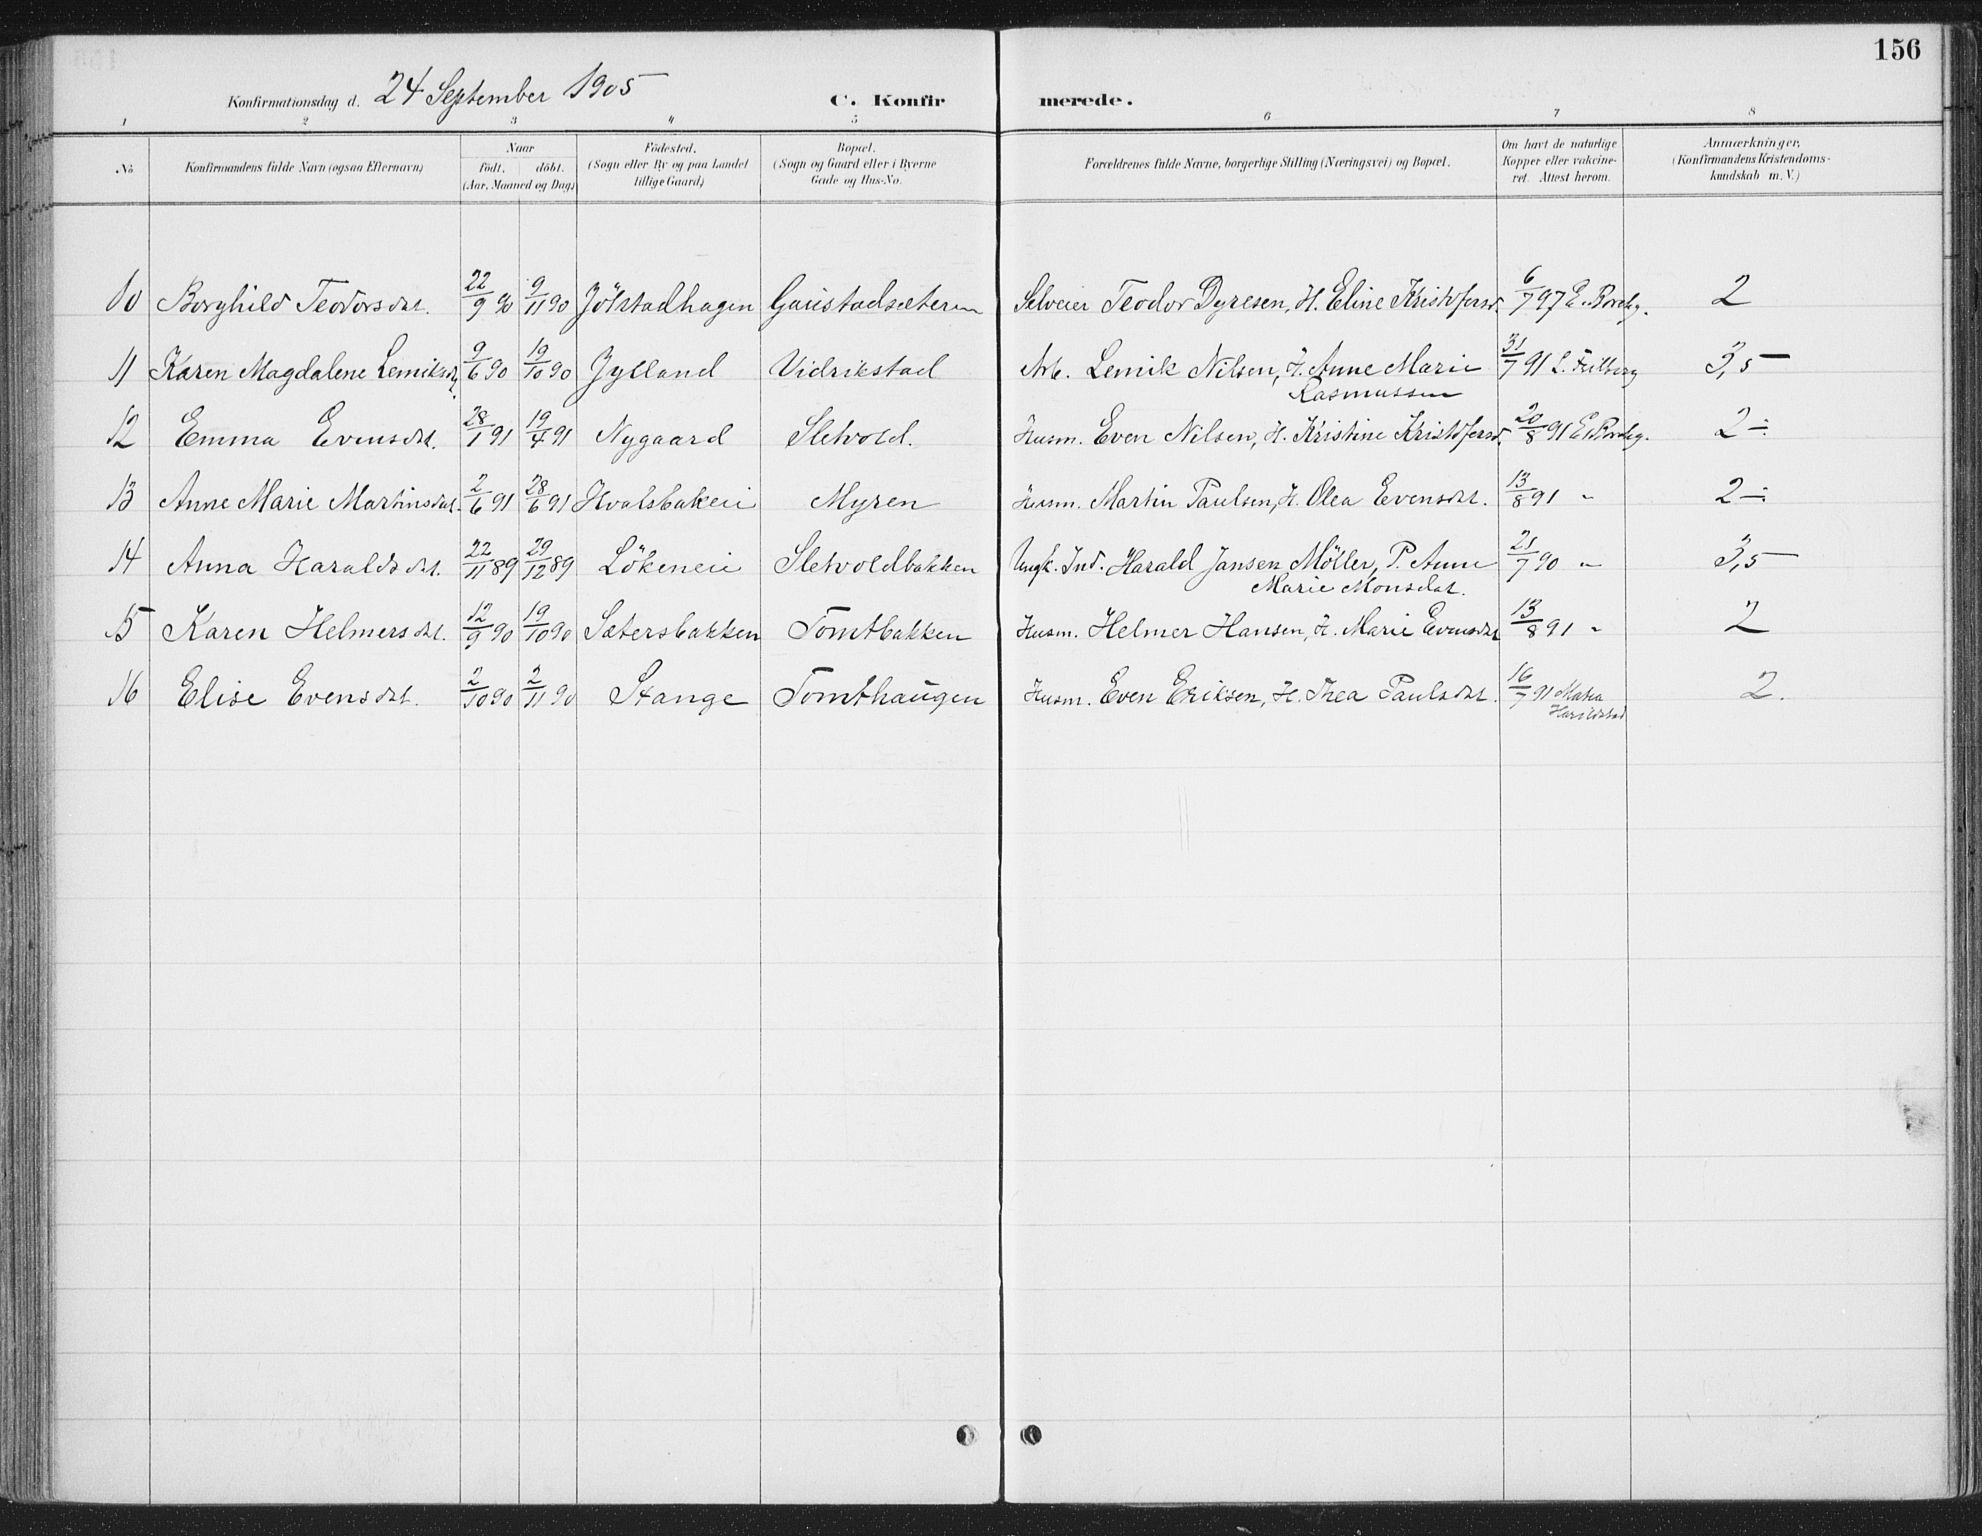 156
Konfirmationsdag d. 24 September 1905 C. Konfir merede.
1 2 3 4 5 6 7 8
No. Konfirmandens fulde Navn (ogsaa Efternavn) Naar födt. döbt. (Aar, Maaned og Dag) Födested. (Sogn eller By og paa Landet tillige Gaard) Bopæl. (Sogn og Gaard eller i Byerne Gade og Hus-No. Forældrenes fulde Navne, borgerlige Stilling (Næringsvei) og Bopæl. Om havt de naturlige Kopper eller vakcineret. Attest herom. Anmærkninger, (Konfirmandens Kristendomskundskab m. V.)
10 Borghild Teodorsdat. 22/9 90 9/11 90 Jölstadhagen Gaustadsæteren Selveier Teodor Dyresen, H. Eline Kristofersd. 6/7 97 2
11 Karen Magdalene Lemiksdt. 9/6 90 19/10 90 Jylland Vidrikstad Arb. Lemik Nilsen, H. Anne Marie 31/7 91 3,5
Rasmussen
12 Emma Evensdt. 28/1 91 19/4 91 Nygaard Sletvold. Husm. Even Nilsen, H. Kristine Kristofersd. 20/8 91 2÷
13 Anne Marie Martinsdat. 2/6 91 28/6 91 Hvalsbakeie Myren Husm. Martin Paulsen, H. Olea Evensdt. 13/8 91 " 2÷
14 Anna Haraldsdt. 22/11 89 29/12 89 Lökeneie Sletvoldbakken Ungk. Ind. Harald Jansen Möller, P. Anne 21/7 90 " 3,5
Marie Monsdat.
15 Karen Helmersdt. 12/9 90 19/10 90 Sætersbakken Tomtbakken Husm. Helmer Hansen, H. Marie Evensdt 13/8 91 " 2
16 Elise Evensdt. 2/10 90 2/11 90 Stange Tomthaugen Husm. Even Eriksen, H. Thea Paulsdt. 16/7 91 2.